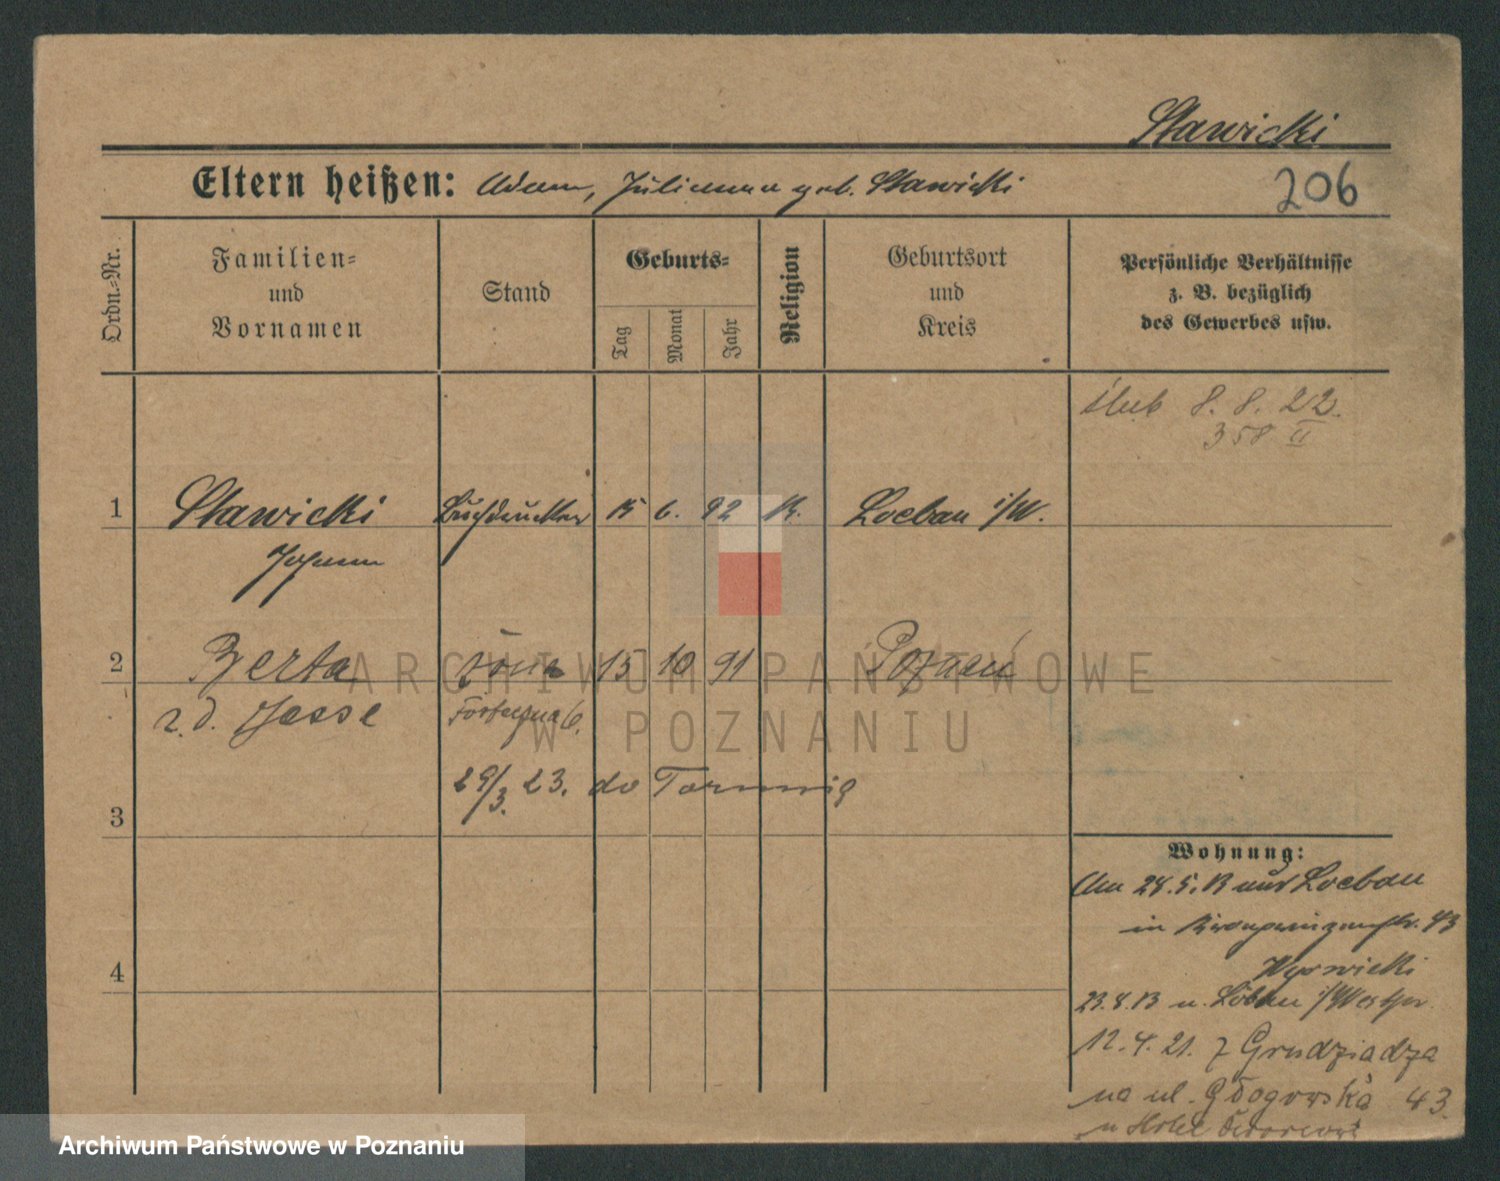 Stawicki
Eltern heißen: Adam, Julianna geb. Stawicki
206
Ordn.-Nr.
Familien-
und
Vornamen
Stand
Geburts-
Tag
Monat
Jahr
Religion
Geburtsort
und
Kreis
Persönliche Verhältnisse
z. B. bezüglich
des Gewerbes usw.
ślub 8. 8. 22.
358 II
1 Stawicki Buchdrucker 15 6. 92 K. Loebau i/W.
Johann
2 Berta żona 15 10 91 Poznań
z. d. Hesse
29/3. 23. do
3
4
Wohnung:
Am 24. 5. 13 aus Loebau
in Kronprinzenstr. 43
23. 8. 13 n. Löbau i/Westpr.
12. 4. 21. z Grudziądza
na ul. Głogowska 43.
ARCHIWUM PAŃSTWOWE
W POZNANIU
Archiwum Państwowe w Poznaniu